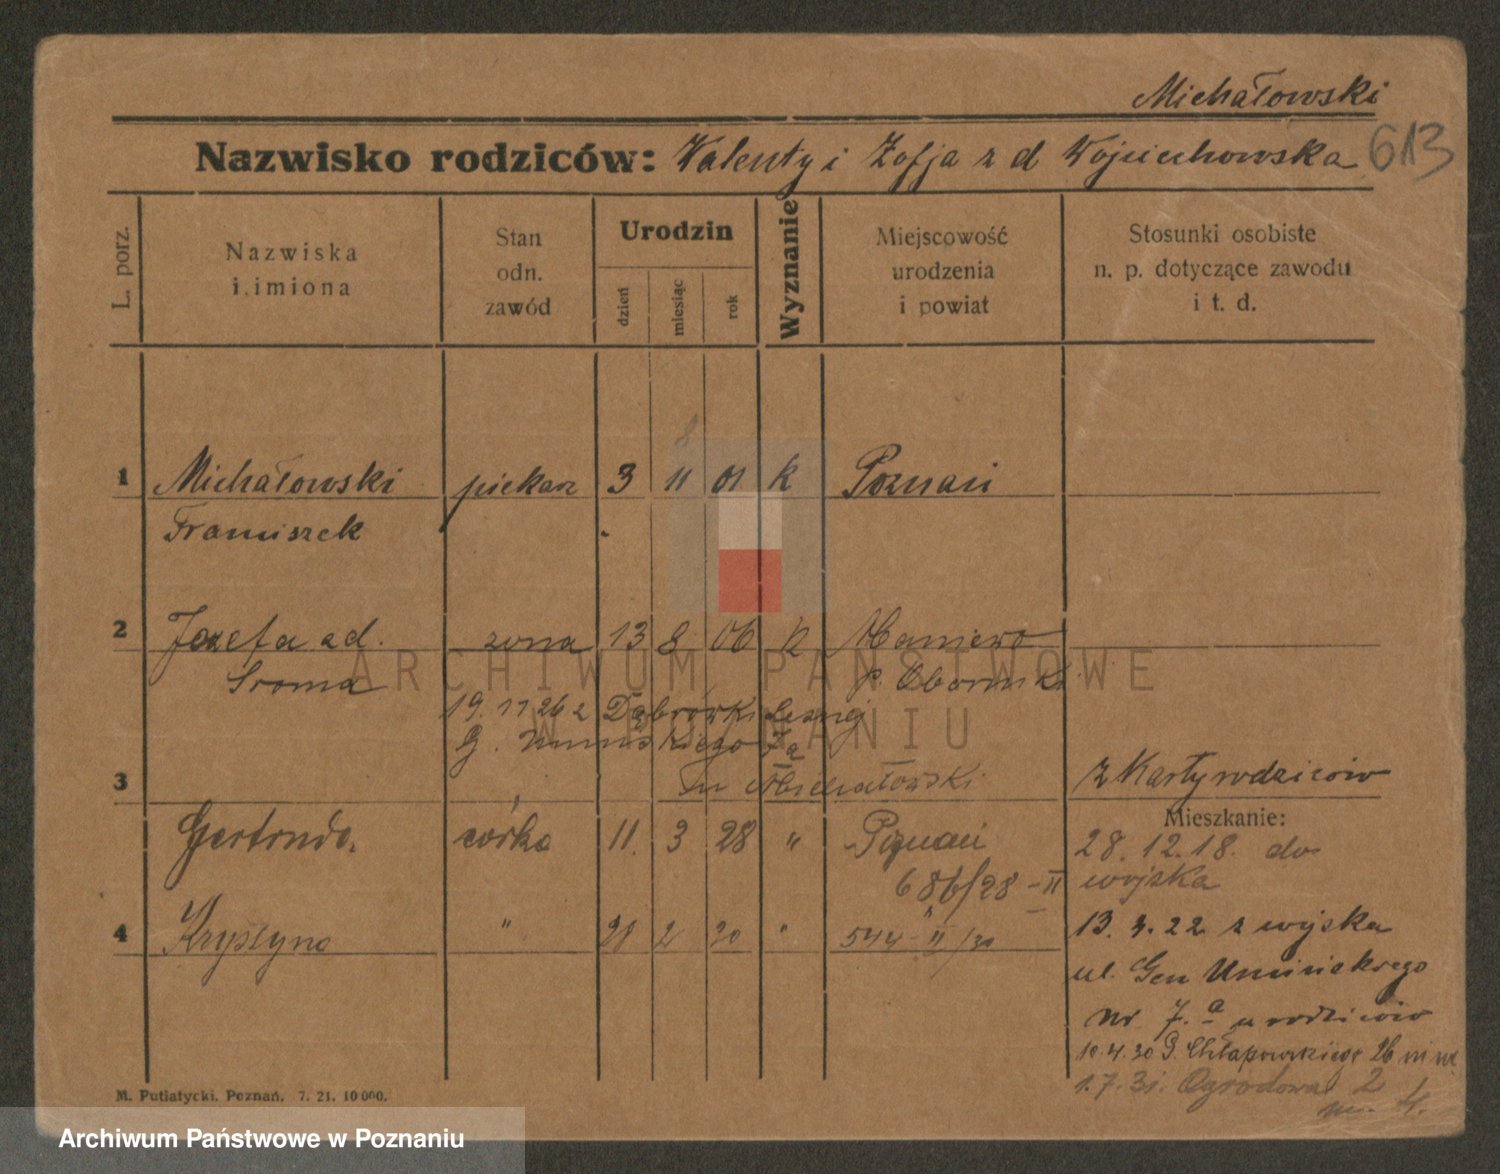 Michałowski
Nazwisko rodziców: Walenty i Zofja z d Wojciechowska 613
L. porz.
Nazwiska
i imiona
Stan
odn.
zawód
Urodzin
dzień
miesiąc
rok
Wyznanie
Miejscowość
urodzenia
i powiat
Stosunki osobiste
n. p. dotyczące zawodu
i t. d.
8
1 Michałowski piekarz 3 11 01 k Poznań
Franciszek
2 Józefa zd. żona 13 8 06 k
Sroma p. Oborniki
19.11 26 z Dąbrówki Leśnej
G. Umińskiego 7a
Michałowski
3 z Karty rodziców
Mieszkanie:
Gertruda córka 11. 3 28 " Poznań
28.12.18. do
wojska
686/28 - II
4 Krystyna " 20 2 30 " 544 - II/30
13. 3. 22 z wojska
ul. Gen Umińskiego
nr 7.a u rodziców
10.4.30 G. Chłapowskiego 26
1.7.31. Ogrodowa 2
m. 4.
M. Putiatycki, Poznań. 7. 21. 10 000.
ARCHIWUM PAŃSTWOWE
W POZNANIU
Archiwum Państwowe w Poznaniu